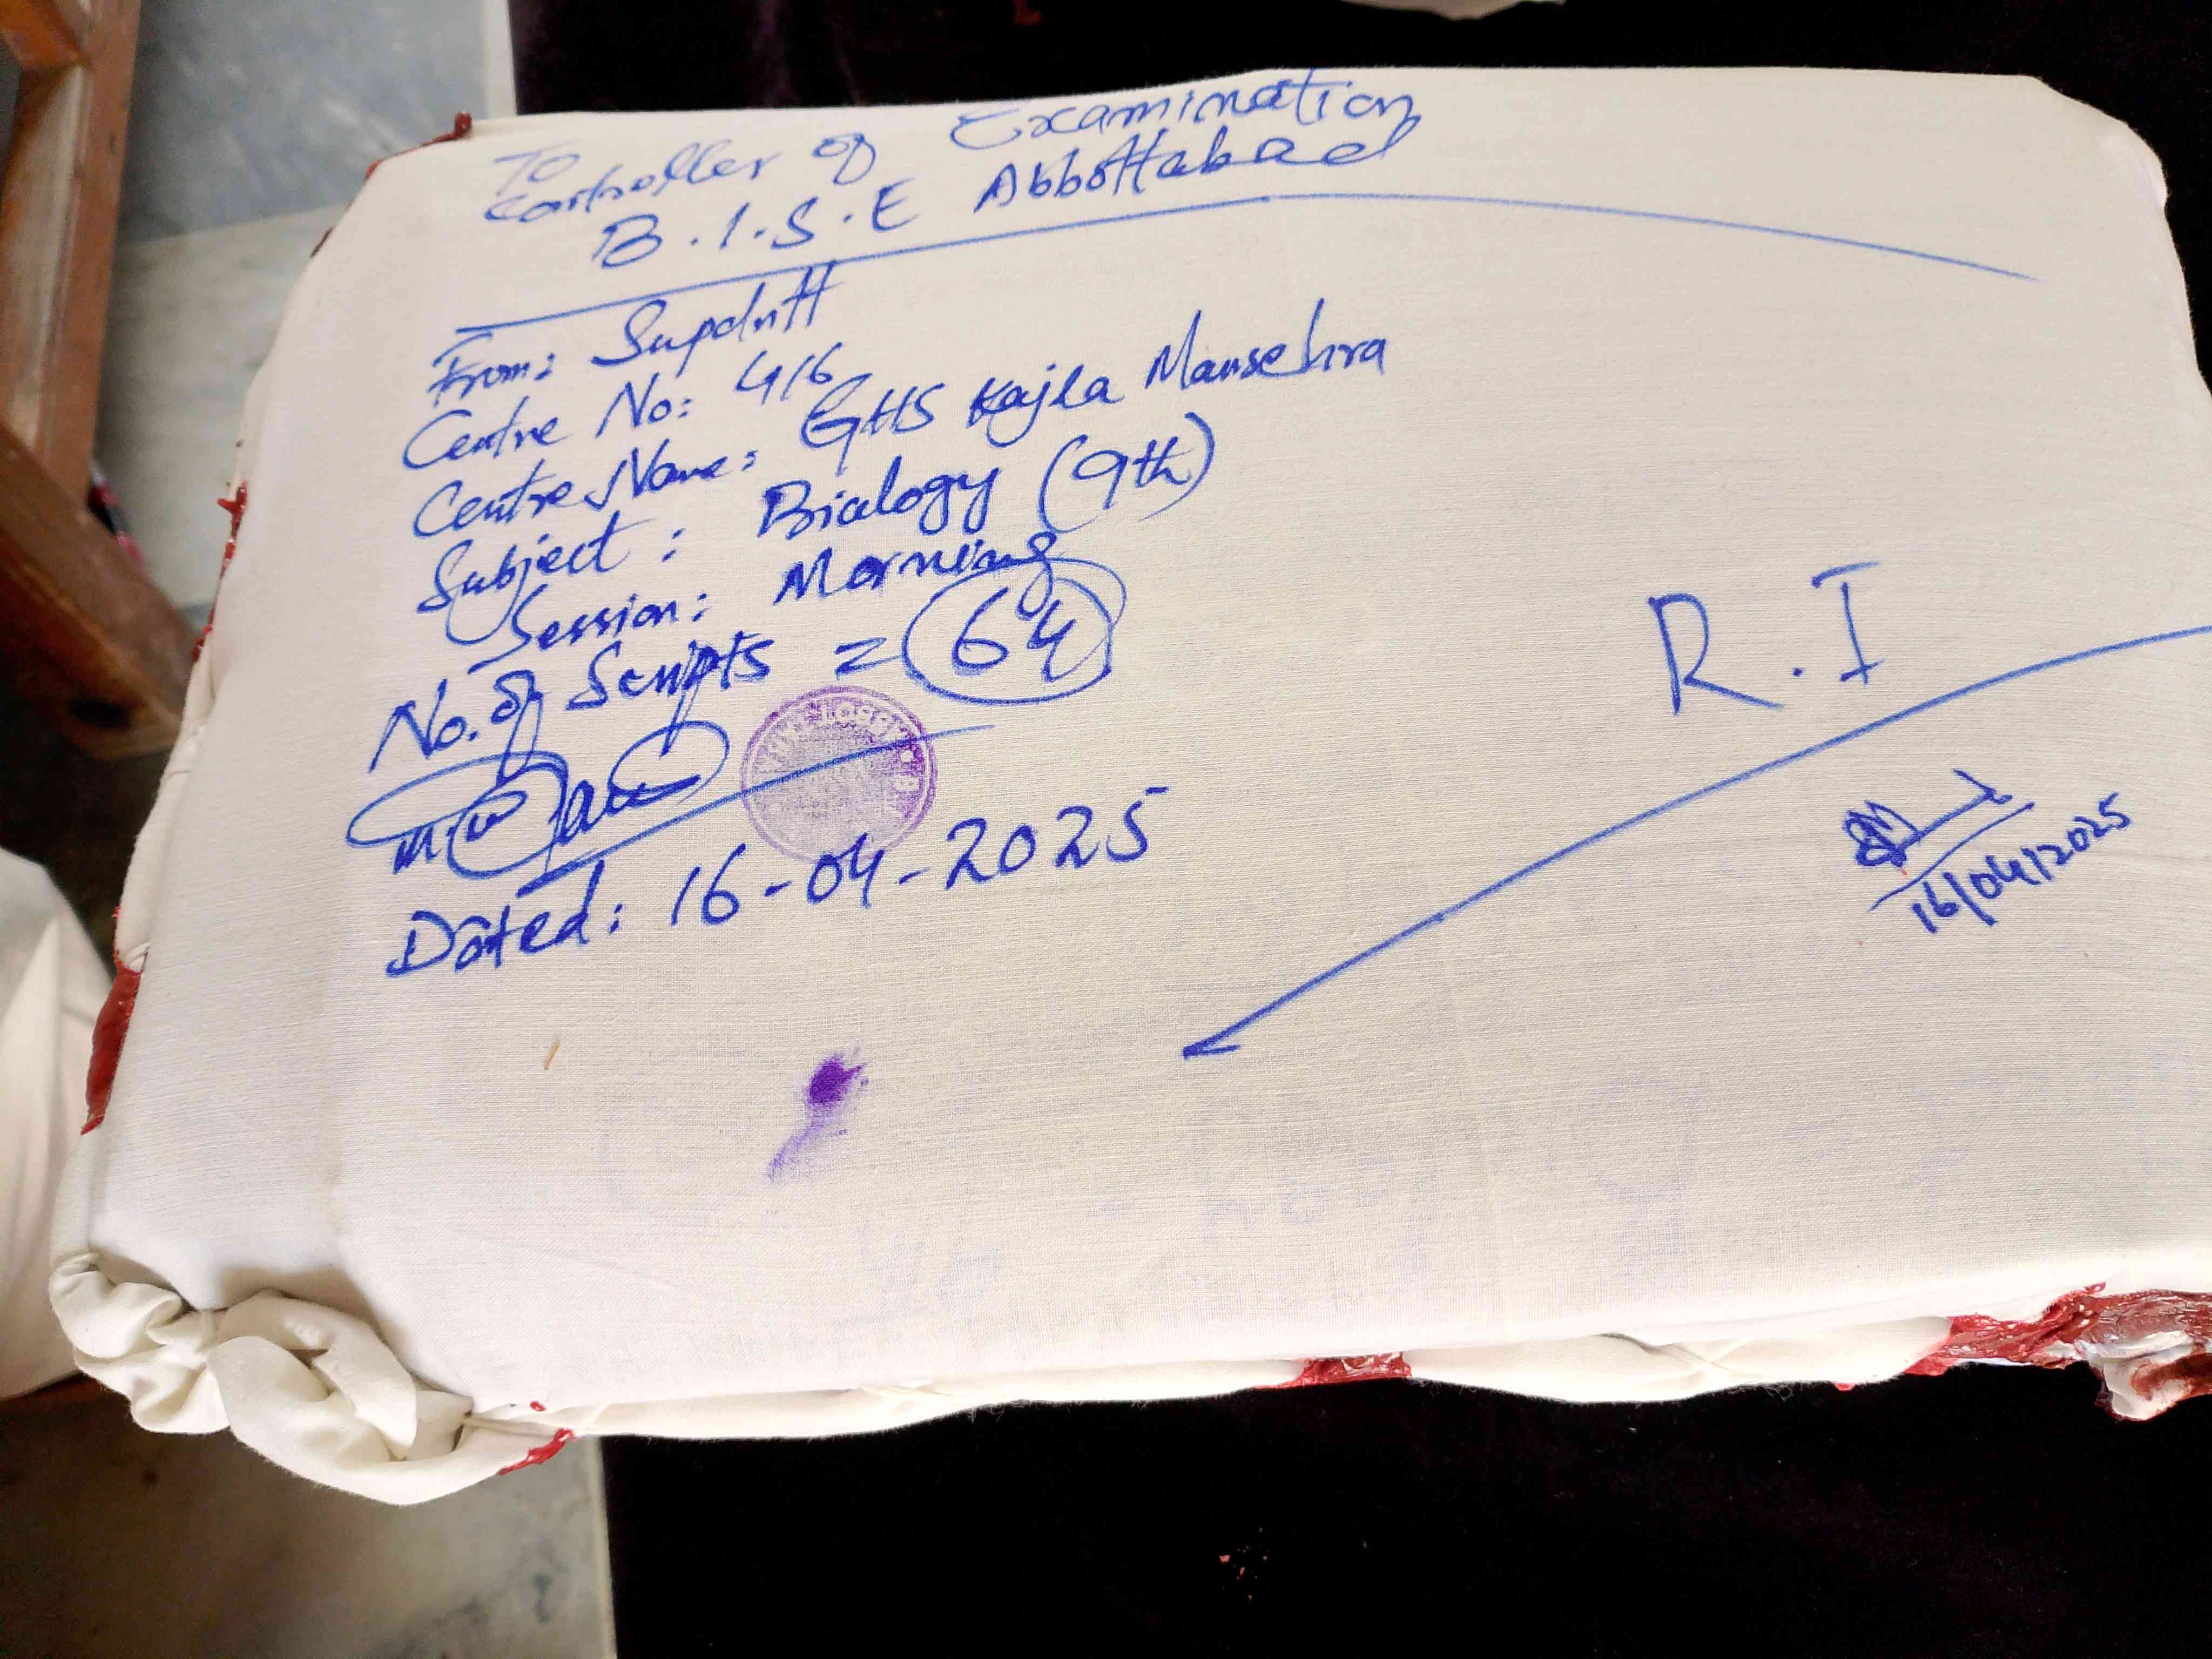 To
Controller of Examination
B.I.S.E Abbottabad
From: Supdntt
Centre No: 416
Centre Name: GHS Kajla Mansehra
Subject: Biology (9th)
Session: Morning
No. of Scripts = 64
Dated: 16-04-2025
R.I
16/04/2025